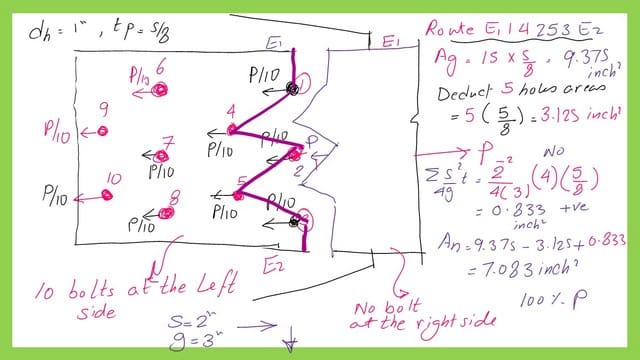 dh = 1" , tp = 5/8
E1
E1
Route E1 1 4 2 5 3 E2
Ag = 15 x 5/8 = 9.375 inch²
Deduct 5 holes areas
= 5 (5/8) = 3.125 inch²
NO
Σ s²/4g t = 2²/4(3) (4)(5/8)
= 0.833 +ve
inch²
An = 9.375 - 3.125 + 0.833
= 7.083 inch²
100 % P
P/10
6
P/10
1
9
P/10
4
P/10
P/10
P
7
P/10
2
P
10
P/10
5
P/10
P/10
8
P/10
3
E2
10 bolts at the Left
side
No bolt
at the right side
S = 2"
g = 3"